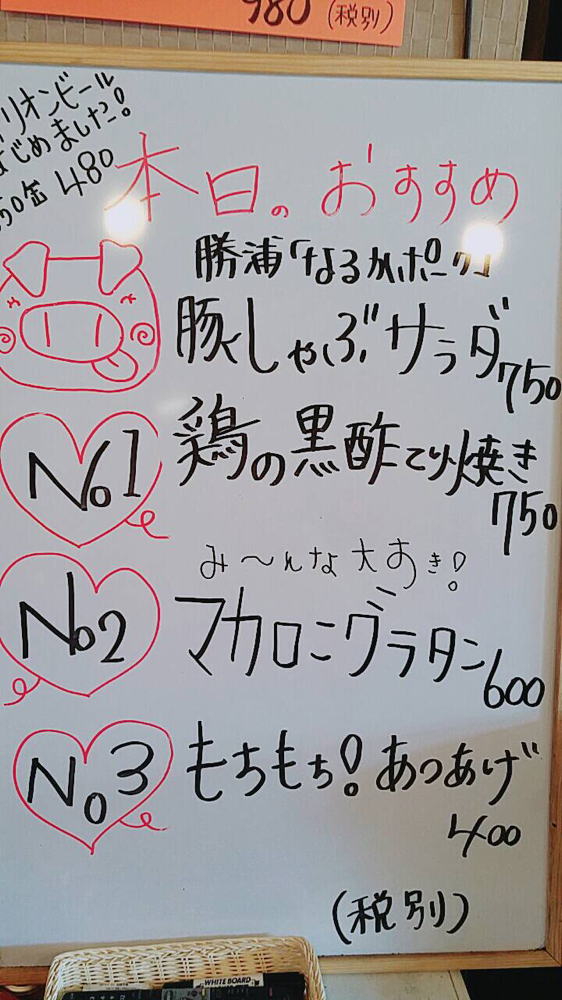 980 (税別)
リオンビール
じめました!
50缶 480
本日のおすすめ
勝浦「なるかポーク」
豚しゃぶサラダ 750
No1
鶏の黒酢てり焼き
750
み〜んな大すき!
No2
マカロニグラタン 600
No3
もちもち!あつあげ
400
(税別)
WHITE BOARD